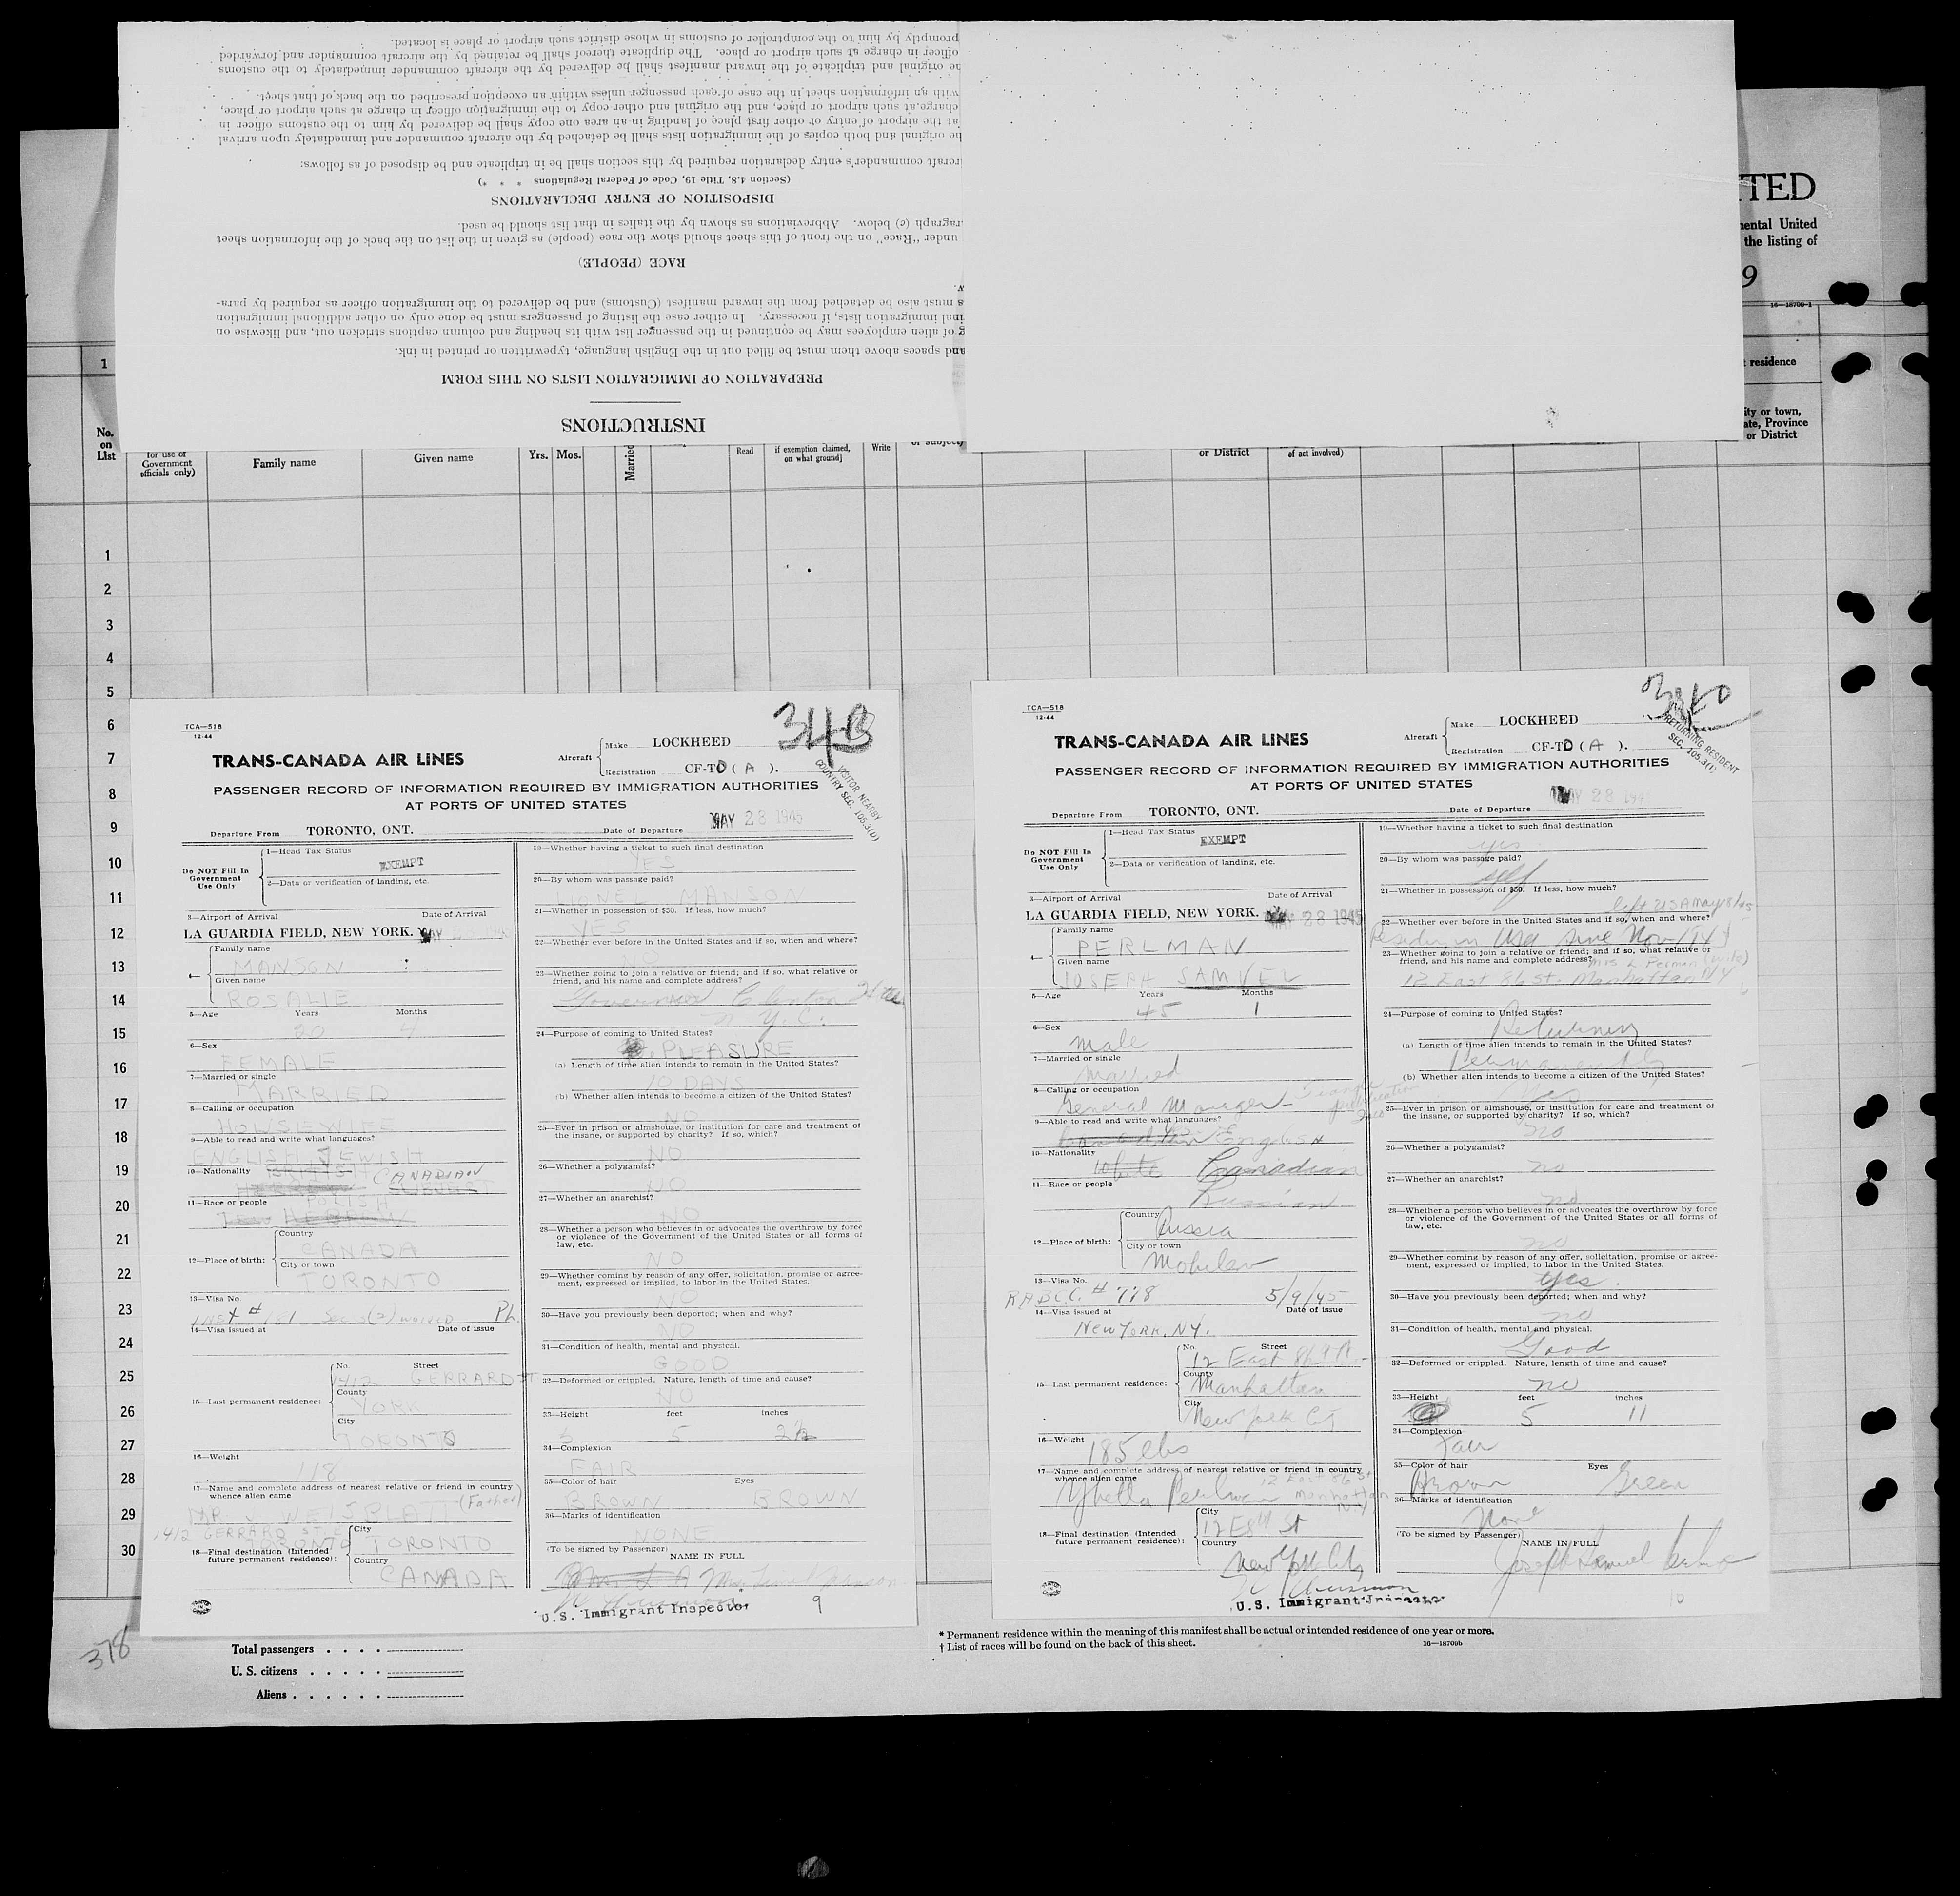 INSTRUCTIONS
PREPARATION OF IMMIGRATION LISTS ON THIS FORM
and spaces above them must be filled out in the English language, typewritten or printed in ink.
of alien employees may be continued in the passenger list with its heading and column captions stricken out, and likewise on
inal immigration lists, if necessary. In either case the listing of passengers must be done only on other additional immigration
s must also be detached from the inward manifest (Customs) and be delivered to the immigration officer as required by para-
w.
RACE (PEOPLE)
under "Race" on the front of this sheet should show the race (people) as given in the list on the back of the information sheet
ragraph (e) below. Abbreviations as shown by the italics in that list should be used.
DISPOSITION OF ENTRY DECLARATIONS
(Section 4.8, Title 19, Code of Federal Regulations * * *)
rcraft commander's entry declaration required by this section shall be in triplicate and be disposed of as follows:
he original and both copies of the immigration lists shall be detached by the aircraft commander and immediately upon arrival
at the airport of entry or other first place of landing in an area one copy shall be delivered by him to the customs officer in
charge at such airport or place, and the original and other copy to the immigration officer in charge at such airport or place,
with an information sheet in the case of each passenger unless within an exception prescribed on the back of that sheet.
he original and triplicate of the inward manifest shall be delivered by the aircraft commander immediately to the customs
officer in charge at such airport or place. The duplicate thereof shall be retained by the aircraft commander and forwarded
promptly by him to the comptroller of customs in whose district such airport or place is located.
TED
nental United
the listing of
9
16—18709-1
1
residence
No. on List
for use of Government officials only)
Family name
Given name
Yrs. Mos.
Married
Read
if exemption claimed, on what ground]
Write
or subject
or District
of act involved)
ity or town,
ate, Province
or District
1
2
3
4
5
6
7
8
9
10
11
12
13
14
15
16
17
18
19
20
21
22
23
24
25
26
27
28
29
30
TCA—518
12-44
343
TRANS-CANADA AIR LINES
Aircraft Make LOCKHEED
Registration CF-TD ( A ).
VISITOR NEARBY
COUNTRY SEC. 105.3(1)
PASSENGER RECORD OF INFORMATION REQUIRED BY IMMIGRATION AUTHORITIES
AT PORTS OF UNITED STATES
Departure From TORONTO, ONT. Date of Departure MAY 28 1945
Do NOT Fill In Government Use Only
1—Head Tax Status EXEMPT
2—Data or verification of landing, etc.
3—Airport of Arrival Date of Arrival
LA GUARDIA FIELD, NEW YORK.
4— Family name MANSON
Given name ROSALIE
5—Age Years 20 Months
6—Sex FEMALE
7—Married or single MARRIED
8—Calling or occupation HOUSEWIFE
9—Able to read and write what languages?
ENGLISH, JEWISH
10—Nationality BRITISH CANADIAN
11—Race or people POLISH
HEBREW
12—Place of birth: Country CANADA
City or town TORONTO
13—Visa No.
181 Sec 3(2) waived Ph
14—Visa issued at Date of issue
15—Last permanent residence: No. 1412 Street GERRARD ST
County YORK
City TORONTO
16—Weight 118
17—Name and complete address of nearest relative or friend in country whence alien came
MR. (Father)
1412 GERRARD ST. TORONTO
18—Final destination (Intended future permanent residence): City TORONTO
Country CANADA
19—Whether having a ticket to such final destination
YES
20—By whom was passage paid?
LIONEL MANSON
21—Whether in possession of $50. If less, how much?
YES
22—Whether ever before in the United States and if so, when and where?
NO
23—Whether going to join a relative or friend; and if so, what relative or friend, and his name and complete address?
Governor Clinton Hotel
N.Y.C.
24—Purpose of coming to United States?
PLEASURE
(a) Length of time alien intends to remain in the United States?
10 DAYS
(b) Whether alien intends to become a citizen of the United States?
NO
25—Ever in prison or almshouse, or institution for care and treatment of the insane, or supported by charity? If so, which?
NO
26—Whether a polygamist?
NO
27—Whether an anarchist?
NO
28—Whether a person who believes in or advocates the overthrow by force or violence of the Government of the United States or all forms of law, etc.
NO
29—Whether coming by reason of any offer, solicitation, promise or agreement, expressed or implied, to labor in the United States.
NO
30—Have you previously been deported; when and why?
NO
31—Condition of health, mental and physical.
GOOD
32—Deformed or crippled. Nature, length of time and cause?
NO
33—Height feet 5 inches 2½
34—Complexion
FAIR
35—Color of hair BROWN Eyes BROWN
36—Marks of identification
NONE
(To be signed by Passenger)
NAME IN FULL
Mrs Lionel Manson
U.S. Immigrant Inspector
9
TCA—518
12-44
340
TRANS-CANADA AIR LINES
Aircraft Make LOCKHEED
Registration CF-TD ( A ).
RETURNING RESIDENT
SEC. 105.3(1)
PASSENGER RECORD OF INFORMATION REQUIRED BY IMMIGRATION AUTHORITIES
AT PORTS OF UNITED STATES
Departure From TORONTO, ONT. Date of Departure MAY 28 1945
Do NOT Fill In Government Use Only
1—Head Tax Status EXEMPT
2—Data or verification of landing, etc.
3—Airport of Arrival Date of Arrival
LA GUARDIA FIELD, NEW YORK. MAY 28 1945
4— Family name PERLMAN
Given name JOSEPH SAMUEL
5—Age Years 45 Months 1
6—Sex male
7—Married or single married
8—Calling or occupation
General Manager
9—Able to read and write what languages?
English
10—Nationality white Canadian
11—Race or people Russian
12—Place of birth: Country Russia
City or town Mohilev
13—Visa No.
# 778 5/9/45
14—Visa issued at Date of issue
New York, N.Y.
15—Last permanent residence: No. Street 12 East 86th
County Manhattan
City New York City
16—Weight 185 lbs
17—Name and complete address of nearest relative or friend in country whence alien came
Perlman 12 East 86 St Manhattan N.Y
18—Final destination (Intended future permanent residence): City 12 E 86 St
Country New York City
19—Whether having a ticket to such final destination
yes
20—By whom was passage paid?
self
21—Whether in possession of $50. If less, how much?
left USA May 18/45
22—Whether ever before in the United States and if so, when and where?
Resident in USA since Nov-1944
23—Whether going to join a relative or friend; and if so, what relative or friend, and his name and complete address?
Mrs L Perlman (wife)
12 East 86 St. Manhattan NY
24—Purpose of coming to United States?
Returning
(a) Length of time alien intends to remain in the United States?
Permanently
(b) Whether alien intends to become a citizen of the United States?
yes
25—Ever in prison or almshouse, or institution for care and treatment of the insane, or supported by charity? If so, which?
no
26—Whether a polygamist?
no
27—Whether an anarchist?
no
28—Whether a person who believes in or advocates the overthrow by force or violence of the Government of the United States or all forms of law, etc.
no
29—Whether coming by reason of any offer, solicitation, promise or agreement, expressed or implied, to labor in the United States.
yes.
30—Have you previously been deported; when and why?
no
31—Condition of health, mental and physical.
Good
32—Deformed or crippled. Nature, length of time and cause?
no
33—Height feet 5 inches 11
34—Complexion
Fair
35—Color of hair Brown Eyes Green
36—Marks of identification
None
(To be signed by Passenger)
NAME IN FULL
Joseph Samuel Perlman
U.S. Immigrant Inspector
10
378
Total passengers . . . .
U. S. citizens . . . . .
Aliens . . . . . .
* Permanent residence within the meaning of this manifest shall be actual or intended residence of one year or more.
† List of races will be found on the back of this sheet.
16—18709b